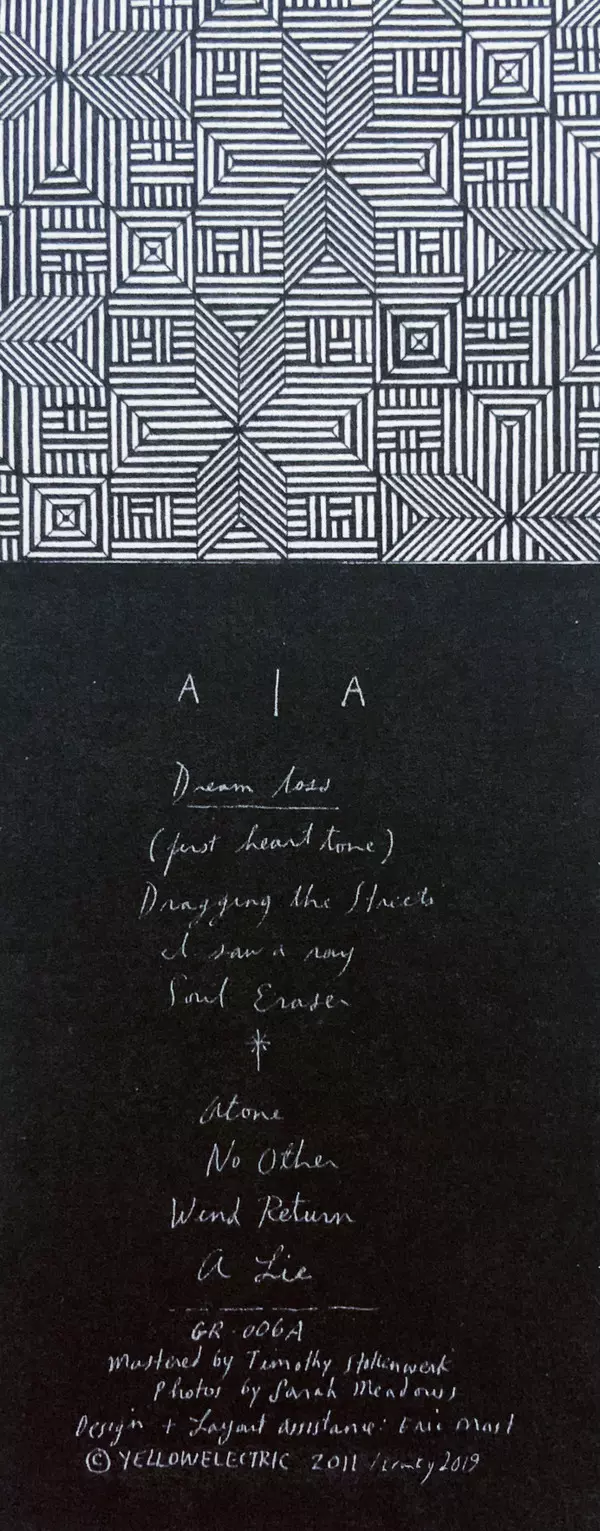 A | A
Dream loss
(first heart tone)
Dragging the Streets
I saw a ray
Soul Eraser
Atone
No Other
Wind Return
A Lie
GR-006A
Mastered by Timothy Stollenwerk
Photos by Sarah Meadows
Design + Layout assistance: Eric Mast
© YELLOWELECTRIC 2011 / kranky 2019